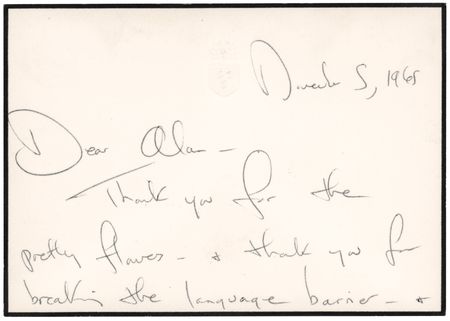 December 5, 1965
Dear Alan —
Thank you for the
pretty flowers — & thank you for
breaking the language barrier — &